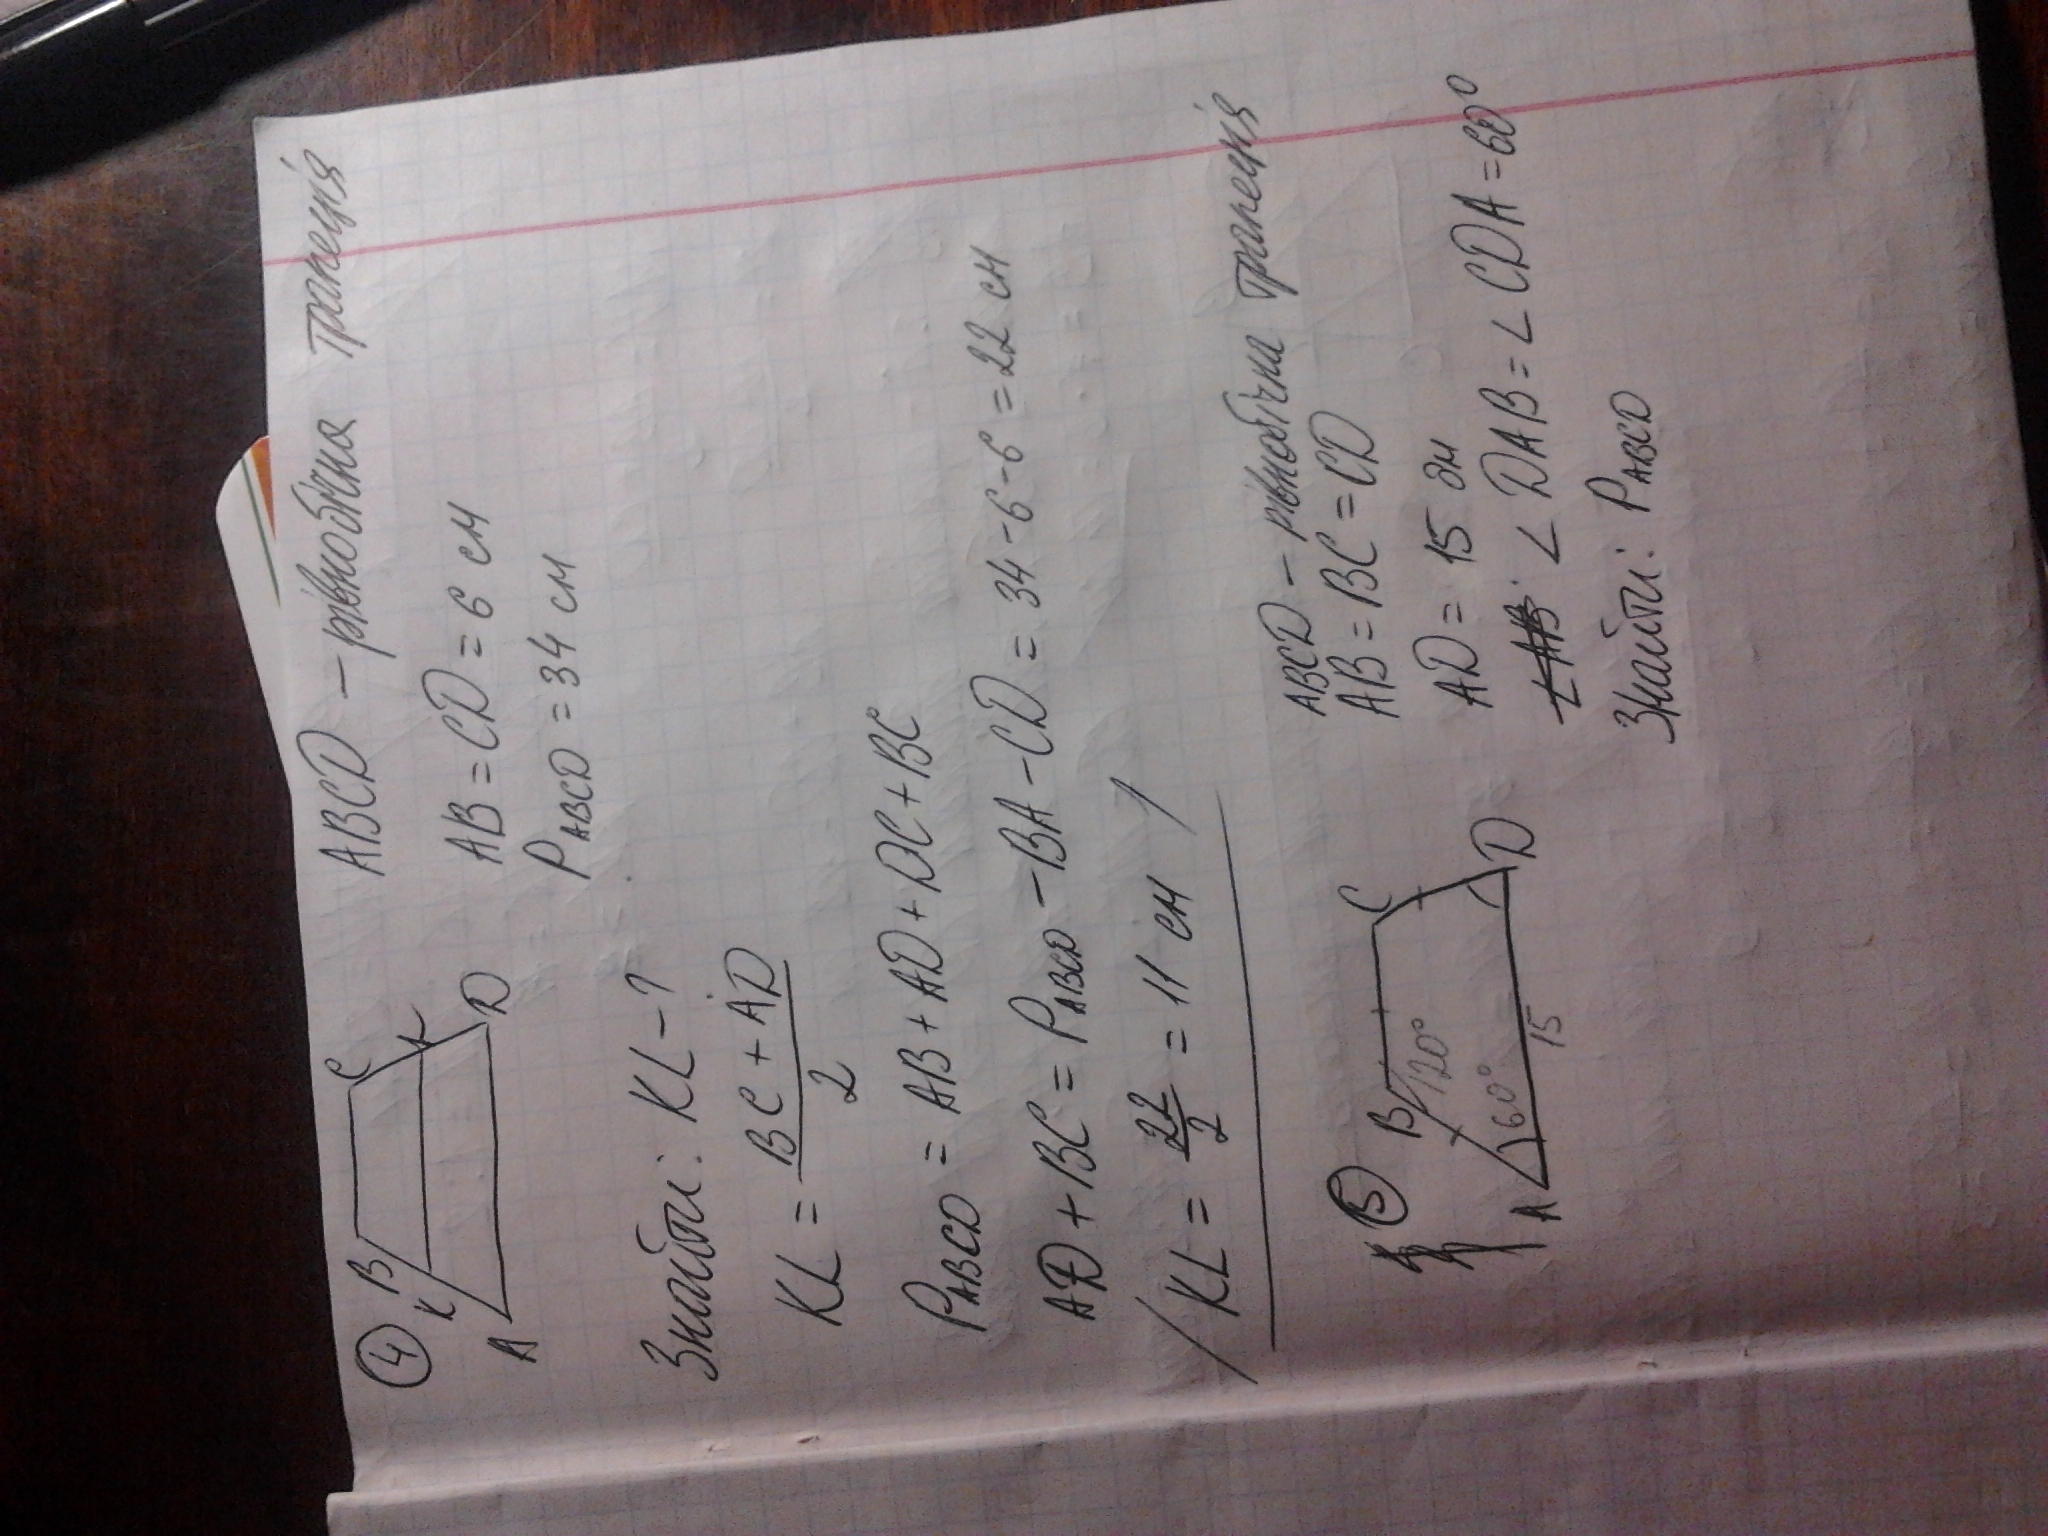 ④ ABCD – рівнобічна трапеція
B C
K L
A D
AB = CD = 6 см
P ABCD = 34 см
Знайти: KL – ?
KL = BC + AD / 2
P ABCD = AB + AD + DC + BC
AD + BC = P ABCD – BA – CD = 34 – 6 – 6 = 22 см
KL = 22 / 2 = 11 см
⑤ ABCD – рівнобічна трапеція
B C
120°
60°
A D
15
AB = BC = CD
AD = 15 см
∠ DAB = ∠ CDA = 60°
Знайти: P ABCD